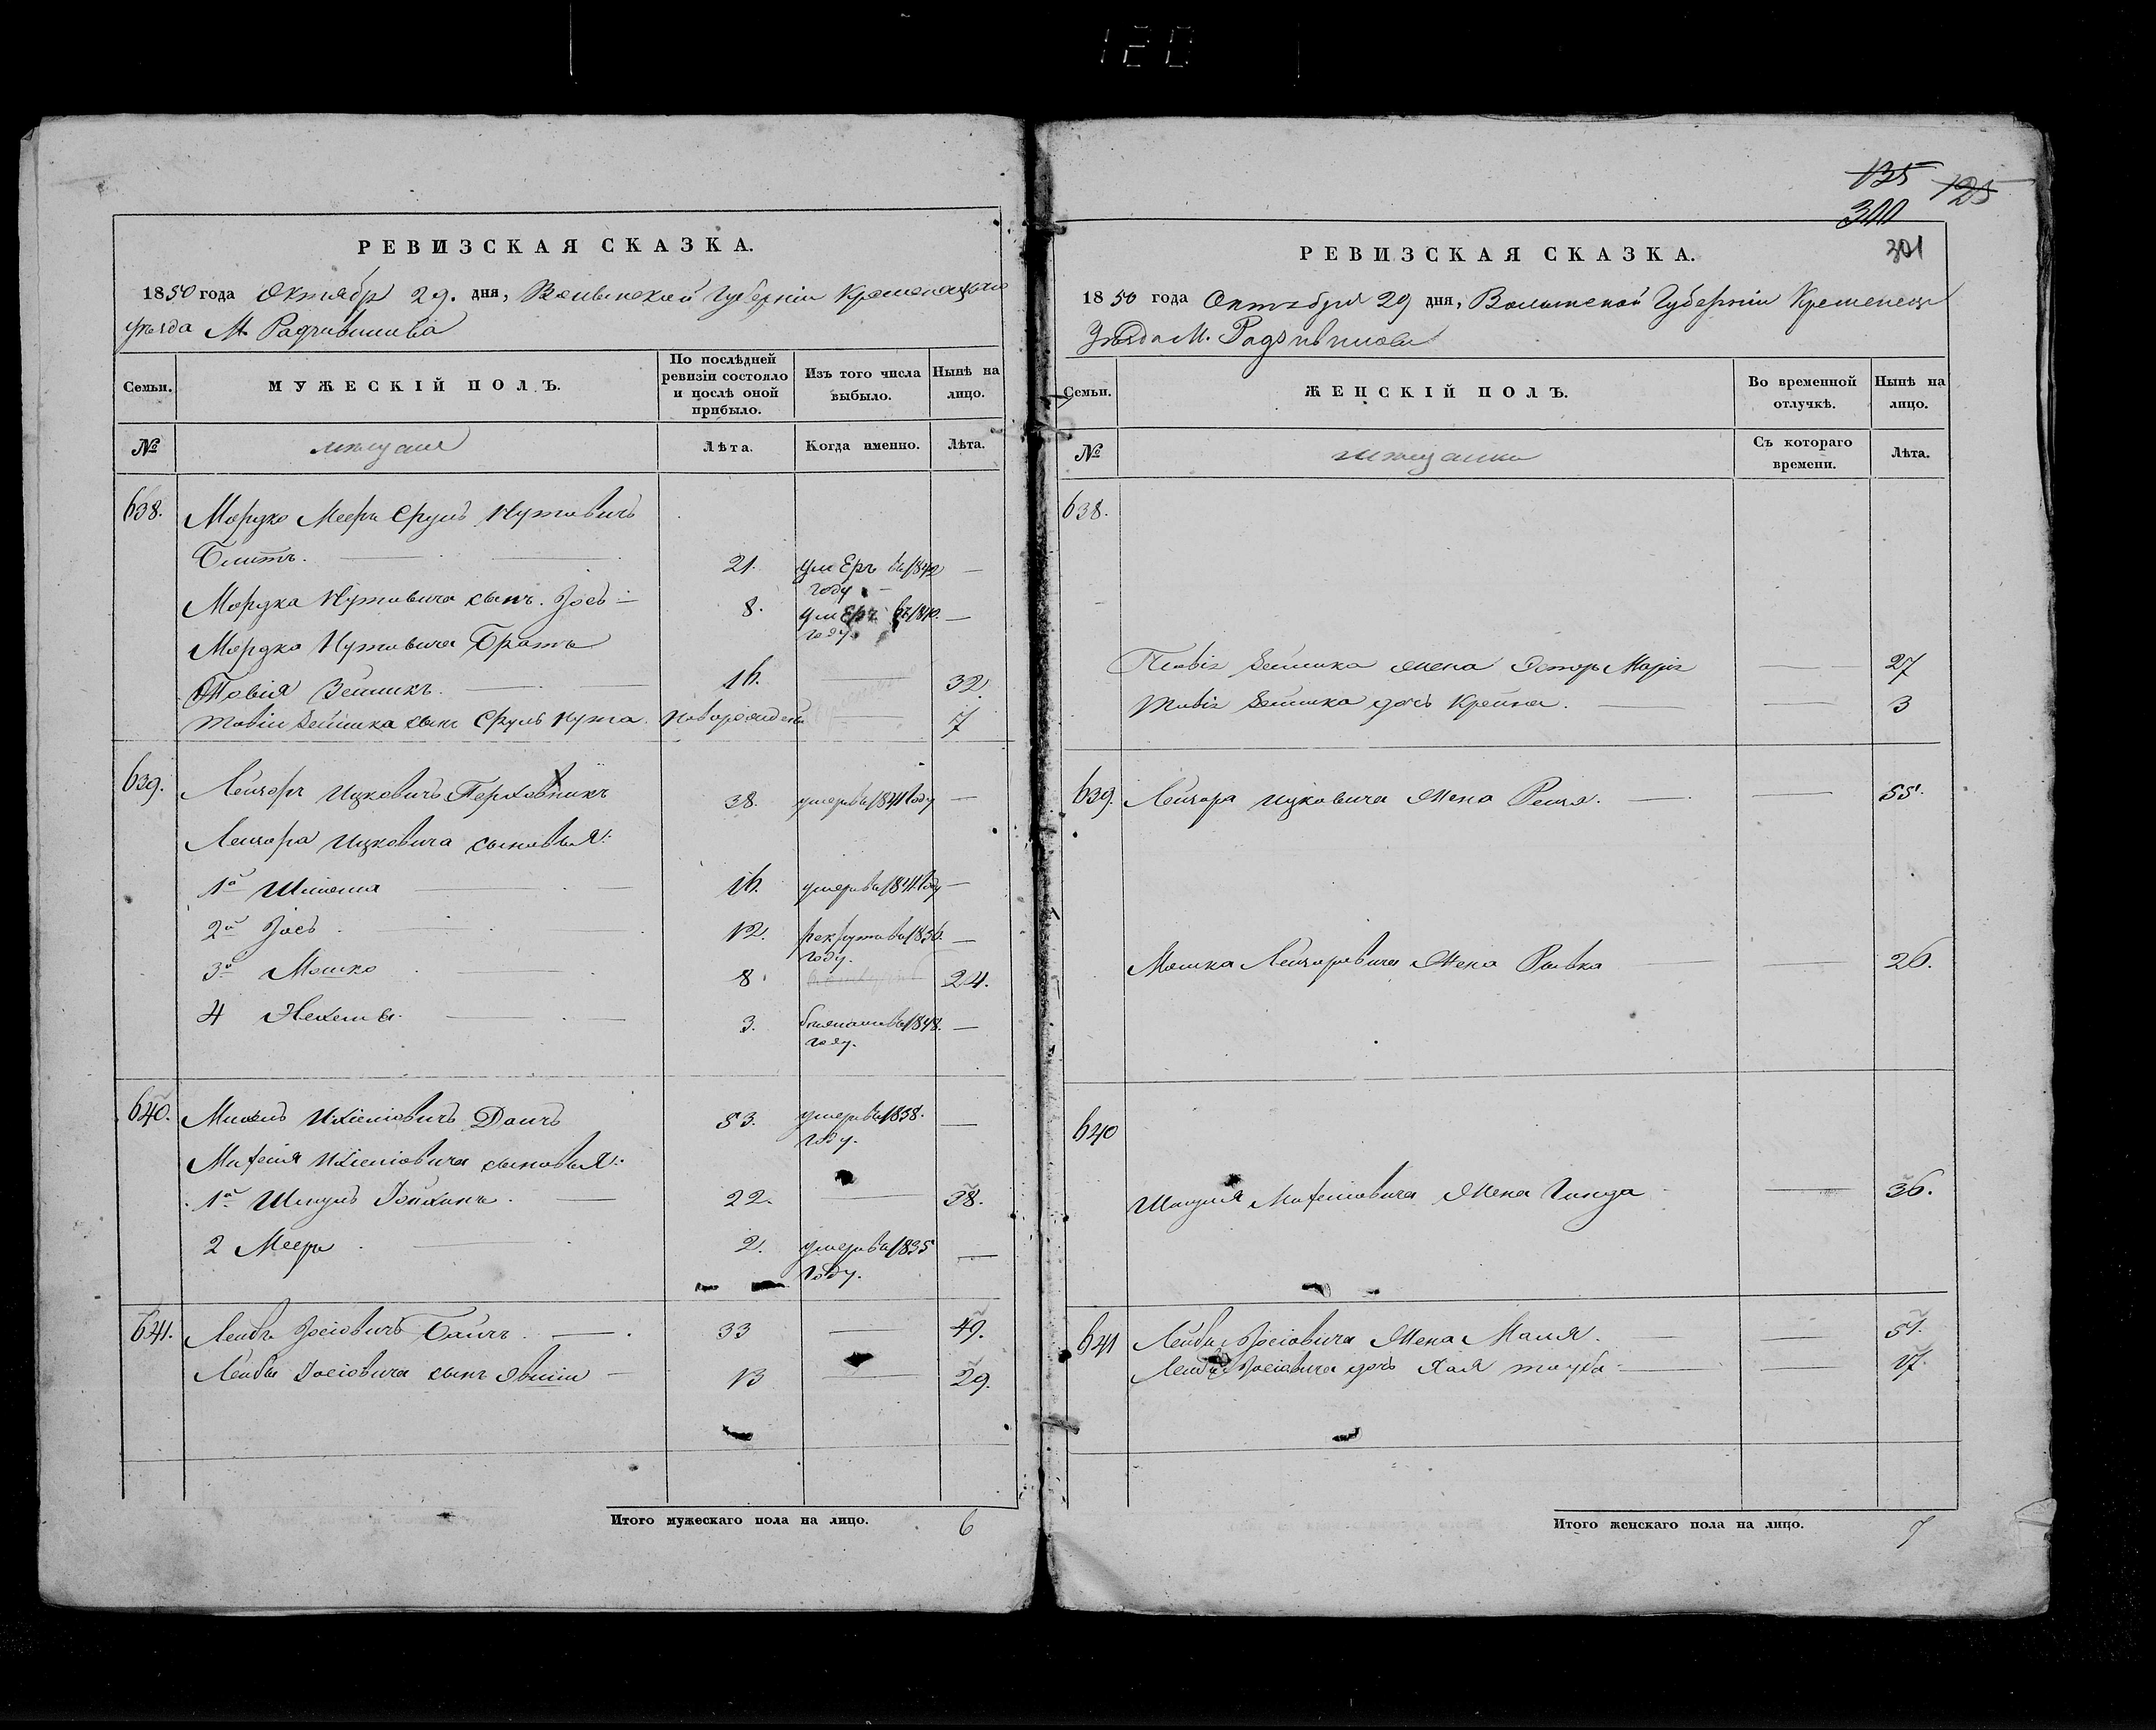 120
РЕВИЗСКАЯ СКАЗКА.
1850 года Октября 29. дня, Волынской Губерніи Кременецкаго
уѣзда М. Радзивилова
Семьи.
МУЖЕСКІЙ ПОЛЪ.
По послѣдней ревизіи состояло и послѣ оной прибыло.
Изъ того числа выбыло.
Нынѣ на лицо.
№
мещане
Лѣта.
Когда именно.
Лѣта.
638. Мордко Мееръ Сруль Нутовичъ
21. умеръ въ 1842 году —
Мордка Нутовича сынъ Іось — 8. умеръ въ 1840. году —
Мордко Нутовича Братъ
Товія Зейликъ. — 16. — 32.
Товіи Зейлика сынъ Сруль Нута. новорожденъ — 7
639. Лейзоръ Ицковичъ 38. умеръ въ 1841 году —
Лейзора Ицковича сыновья:
1й 16. умеръ въ 1841 году —
2й Іось 12. рекрутъ въ 1836. году. —
3й Мошко 8. 24.
4 3. въ 1848. году. —
640. Михель Ихіеліовичъ 53. умеръ въ 1838. году. —
Михеля Ихіеліовича сыновья:
1й Шмуль 22. — 38.
2 Мееръ 2. умеръ въ 1835 году. —
641. Лейба Іосіовичъ — 33 — 49.
Лейбы Іосіовича сынъ — 13 — 29.
Итого мужескаго пола на лицо. 6
135 125
300
301
РЕВИЗСКАЯ СКАЗКА.
1850 года Октября 29 дня, Волынской Губерніи Кременец
Уѣзда М. Радзивилова
Семьи.
ЖЕНСКІЙ ПОЛЪ.
Во временной отлучкѣ.
Нынѣ на лицо.
№
мещанки
Съ котораго времени.
Лѣта.
638.
Товія Зейлика жена Эстеръ — 27
Товія Зейлика дочь Крейна. — — 3
639. Лейзора Ицковича жена — — 55.
Мошка Лейзоровича жена Рывка — — 26.
640
Шмуля Михеліовича жена Гинда — 36.
641 Лейбы Іосіовича жена Маля. — — 51.
Лейбы Іосіовича дочь Хая Тауба — — 17.
Итого женскаго пола на лицо. 7